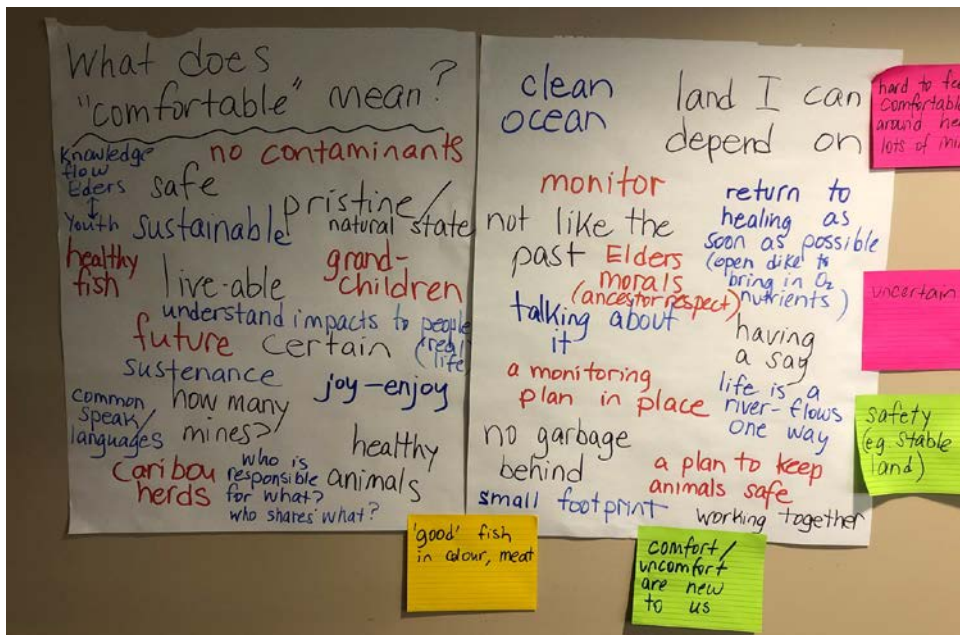 What does
"comfortable" mean?
Knowledge
flow
Elders
↕
Youth
no contaminants
safe
pristine/
natural state
sustainable
healthy
fish
live-able
grand-
children
understand impacts to people
(real
life)
future
certain
sustenance
joy-enjoy
common
speak/
languages
how many
mines?
healthy
animals
caribou
herds
who is
responsible
for what?
who shares what?
clean
ocean
land I can
depend on
monitor
return to
healing as
soon as possible
(open dike to
bring in O₂
nutrients)
not like the
past
Elders
morals
(ancestor respect)
talking about
it
having
a say
a monitoring
plan in place
life is a
river-flows
one way
no garbage
behind
a plan to keep
animals safe
small footprint
working together
hard to
comfortable
around
lots of
uncertain
safety
(eg stable
land)
'good' fish
in colour, meat
comfort/
uncomfort
are new
to us